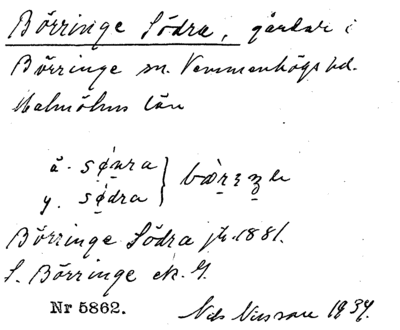 Börringe Södra, gårdar i
Börringe sn. Vemmenhögs hd.
Malmöhus län
ä. sǿ̣ṇra
y. sǿ̣dra
Börringe Södra jk. 1881.
S. Börringe ek. G.
Nr 5862. Nils Nilsson 1934.